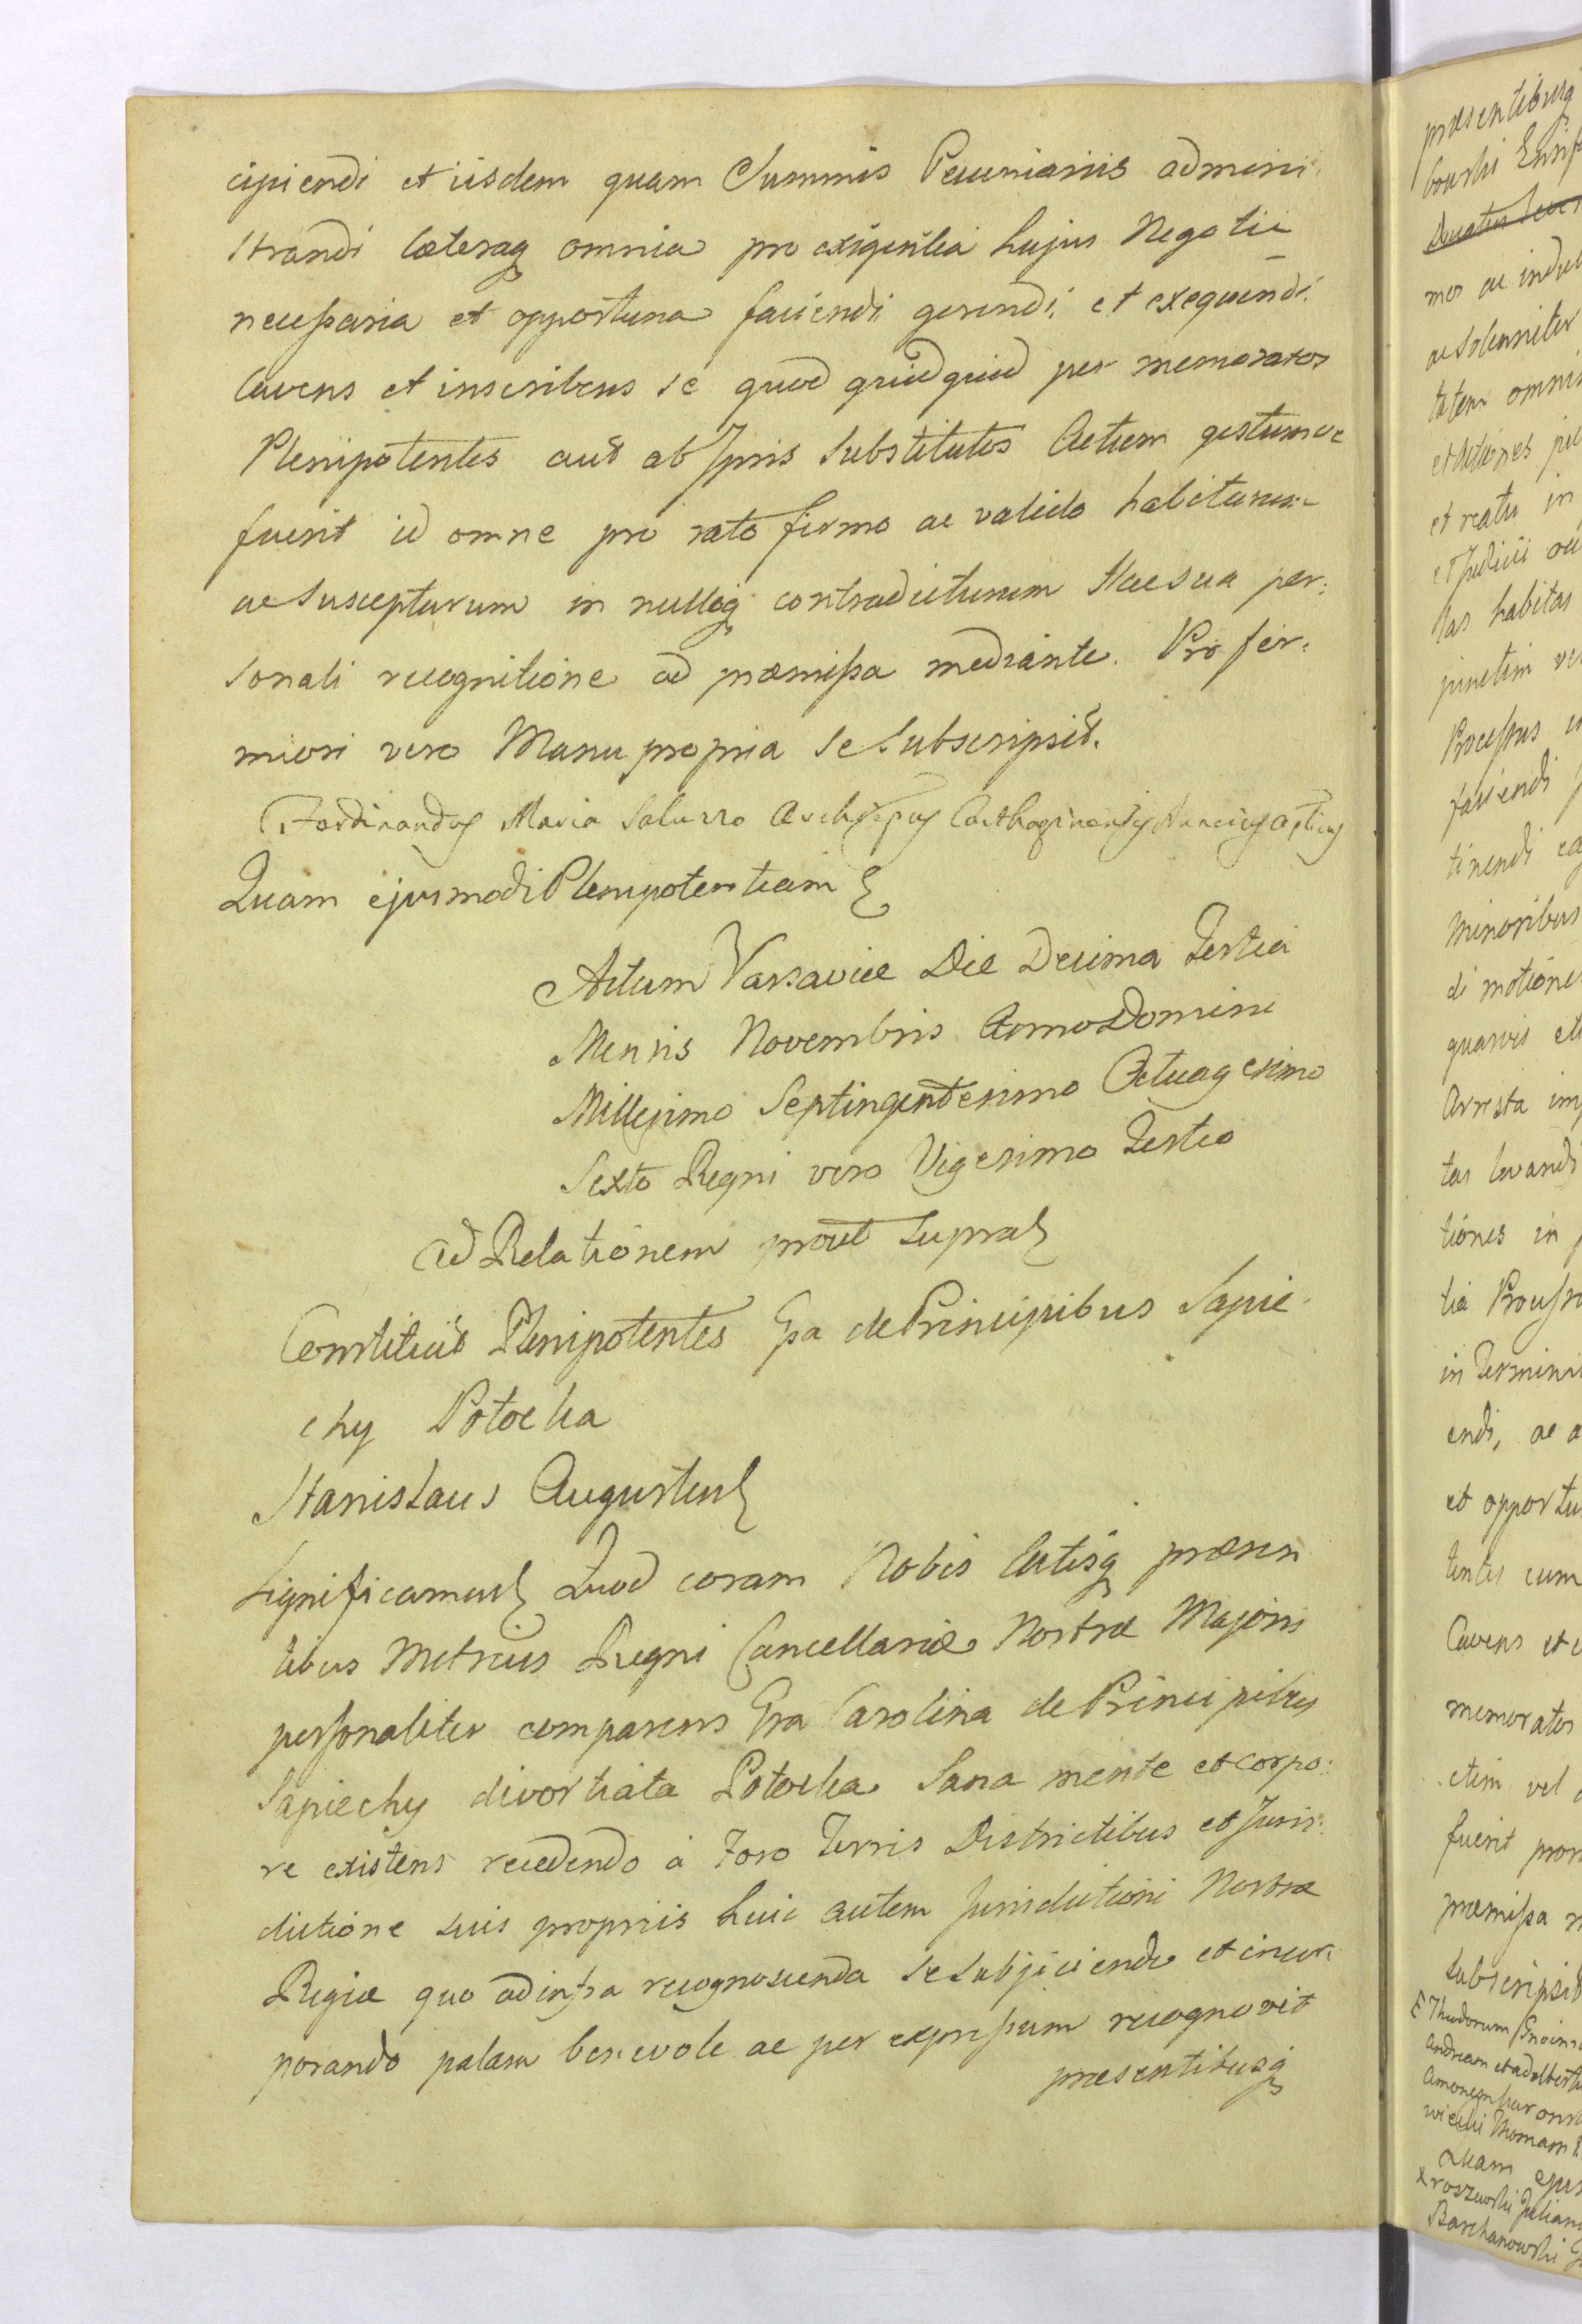 cipiendi et iisdem quam Summis Pecuniariis admini:
strandi caeteraq omnia pro exigentia hujus Negotii
necessaria et opportuna faciendi gerendi, et exequendi.
Cavens et inscribens se quod quidquid per memoratos
Plenipotentes aut ab Ipsis Substitutos Actum gestumve
fuerit id omne pro rato firmo ac valido habiturum
ac Suscepturum in nulloq contradicturum Hac sua per:
sonali recognitione ad praemissa mediante. Pro fir:
miori vero Manu propria se Subscripsit.
Ferdinandus Maria Saluzzo Archiepus Carthaginensis Nuncius Aplicus
Quam ejusmodi Plenipotentiam
Actum Varsaviae Die Decima Tertia
Mensis Novembris Anno Domini
Millesimo Septingentesimo Octuagesimo
Sexto Regni vero Vigesimo Tertio
Ad Relationem prout supra
Constituit Plenipotentes Gsa de Principibus Sapie
chy Potocka
Stanislaus Augustus
Significamus Quod coram Nobis Actisq praesen
tibus Metrices Regni Cancellariae Nostrae Majoris
personaliter comparens Gsa Carolina de Principibus
Sapiechy divortiata Potocka Sana mente et corpo:
re existens recedendo à Foro Terris Districtibus et Juris:
dictione suis propriis huic autem Jurisdictioni Nostrae
Regiae quo ad infra recognoscenda se subjiciendo et incor:
porando palam benevole ac per expressum recognovit
praesentibusq
praesentibusq
mes ac indu
ac Solenniter
tatem omni
et Actiones
et reatu in
las habitas
junctim
Processus
faciendi
tinendi
Minoribus
di motione
quasvis
Arresta
tas levandi
tiones in
tia
in Termini
endi, ac a
et opportu
tentes cum
Cavens et
memoratos
ctim vel
fuerit
praemissa
Subscripsit
Quam
Barchanowski